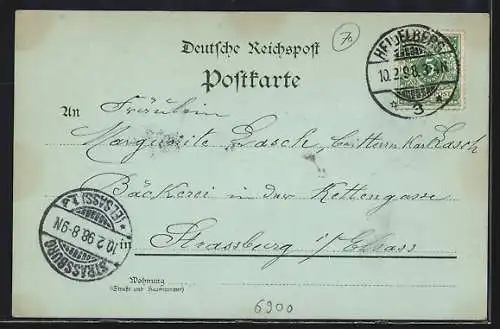 70
Deutsche Reichspost
Postkarte
HEIDELBERG
10.2.98.
3
An Fräulein
Marguerite Lasch, bei Herrn Karl Lasch
Bäckerei in der Kettengasse
in
Strassburg i/Elsass
STRASSBURG
10 2 98 8-9N
*(ELSASS) 1.d
Wohnung
(Straße und Hausnummer)
6900